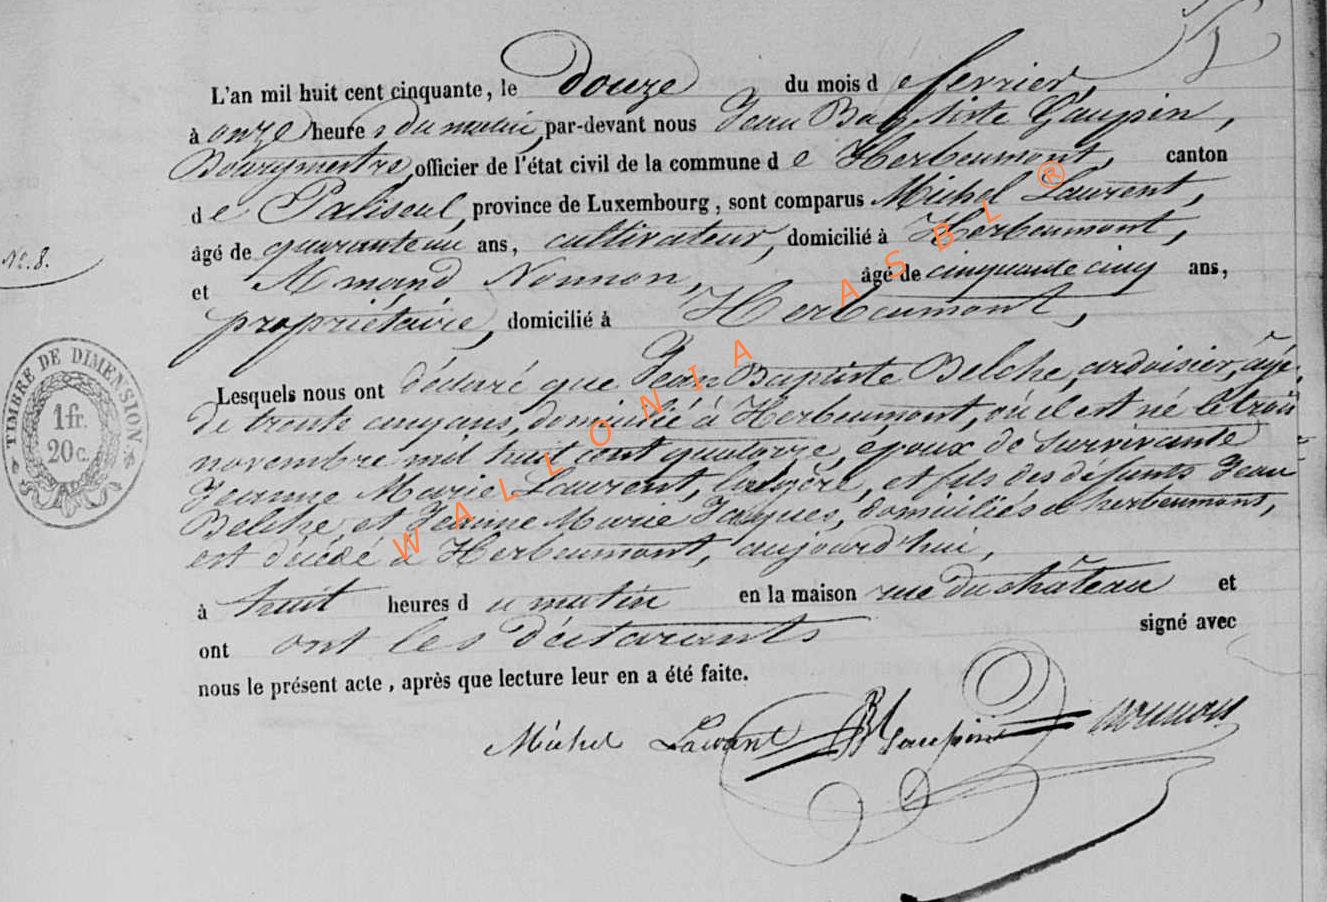 L'an mil huit cent cinquante, le Douze du mois d e fevrier,
à onze heure s du matin, par-devant nous Jean Baptiste Gaupin,
Bourgmestre, officier de l'état civil de la commune d e Herbeumont, canton
d e Paliseul, province de Luxembourg, sont comparus Michel Laurent,
âgé de quarante un ans, cultivateur, domicilié à Herbeumont,
N°. 8.
et Amand Nonnon, âgé de cinquante cinq ans,
propriétaire, domicilié à Herbeumont,
Lesquels nous ont déclaré que Jean Baptiste Belche, ardoisier, âgé
de trente cinq ans, domicilié à Herbeumont, où il est né le trois
novembre mil huit cent quatorze, époux de survivante
Jeanne Marie Laurent, et fils des défunts Jean
Belche, et Jeanne Marie Jacques, domiciliés à herbeumont,
est décédé à Herbeumont, aujourd'hui,
à huit heures d u matin en la maison rue du château et
ont ont les déclarants signé avec
nous le présent acte, après que lecture leur en a été faite.
Michel Laurent JB Gaupin Nonnon
TIMBRE DE DIMENSION
1 fr.
20 c.
WALLONIA ASBL ®